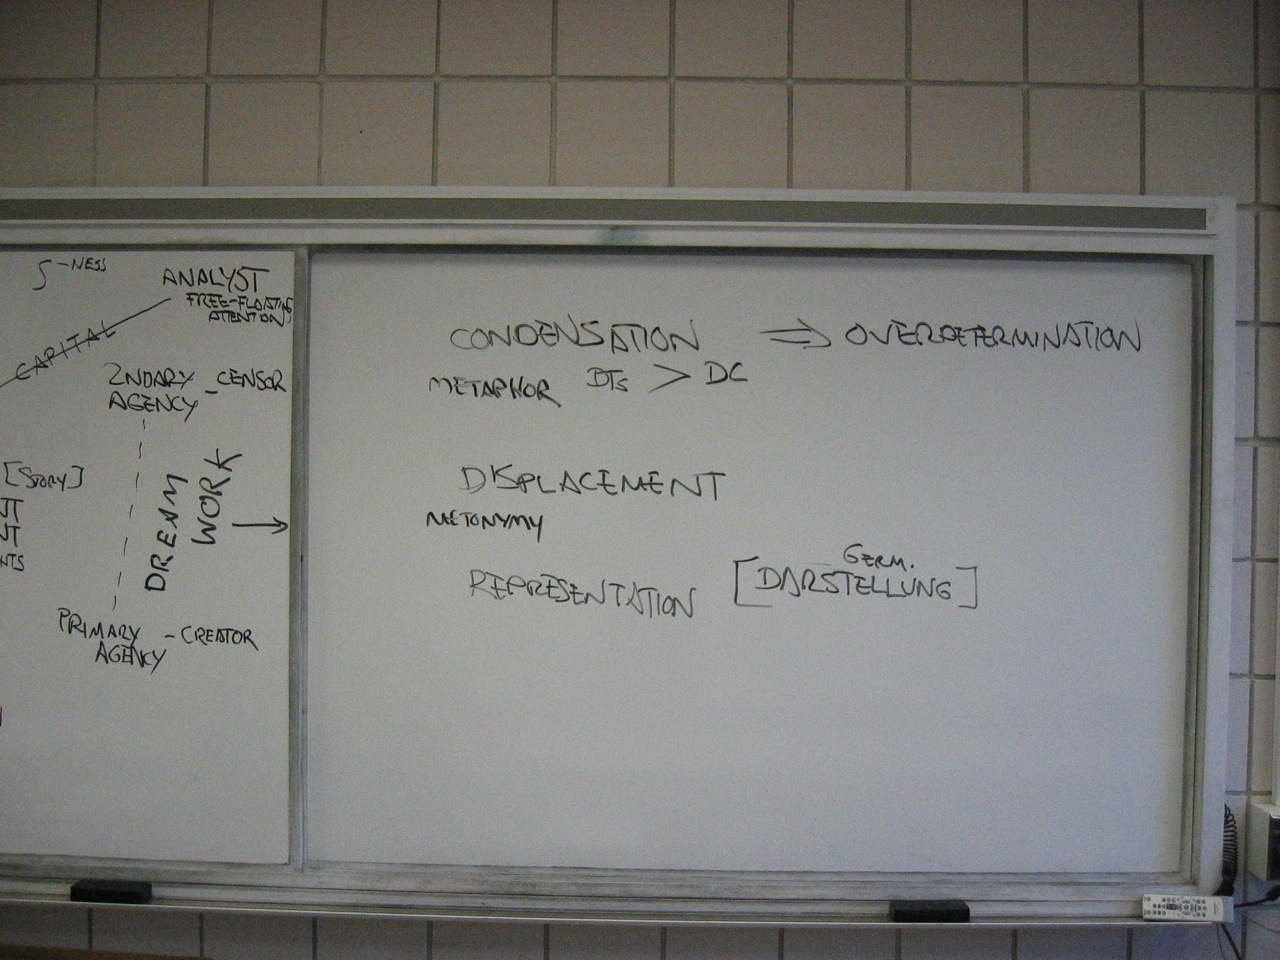 S-NESS
ANALYST
FREE-FLOATING
ATTENTION
CAPITAL
2NDARY
AGENCY - CENSOR
[STORY]
DREAM
WORK →
PRIMARY
AGENCY - CREATOR
CONDENSATION ⇒ OVERDETERMINATION
METAPHOR DTs > DC
DISPLACEMENT
METONYMY
REPRESENTATION [DARSTELLUNG]
GERM.